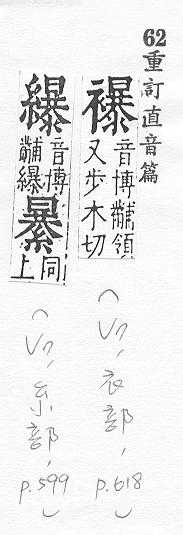 62重訂直音篇
襮
音博黼領
又步木切
(V7,衣部,p.618)
音博
黼
同
上
(V7,糸部,p.599)